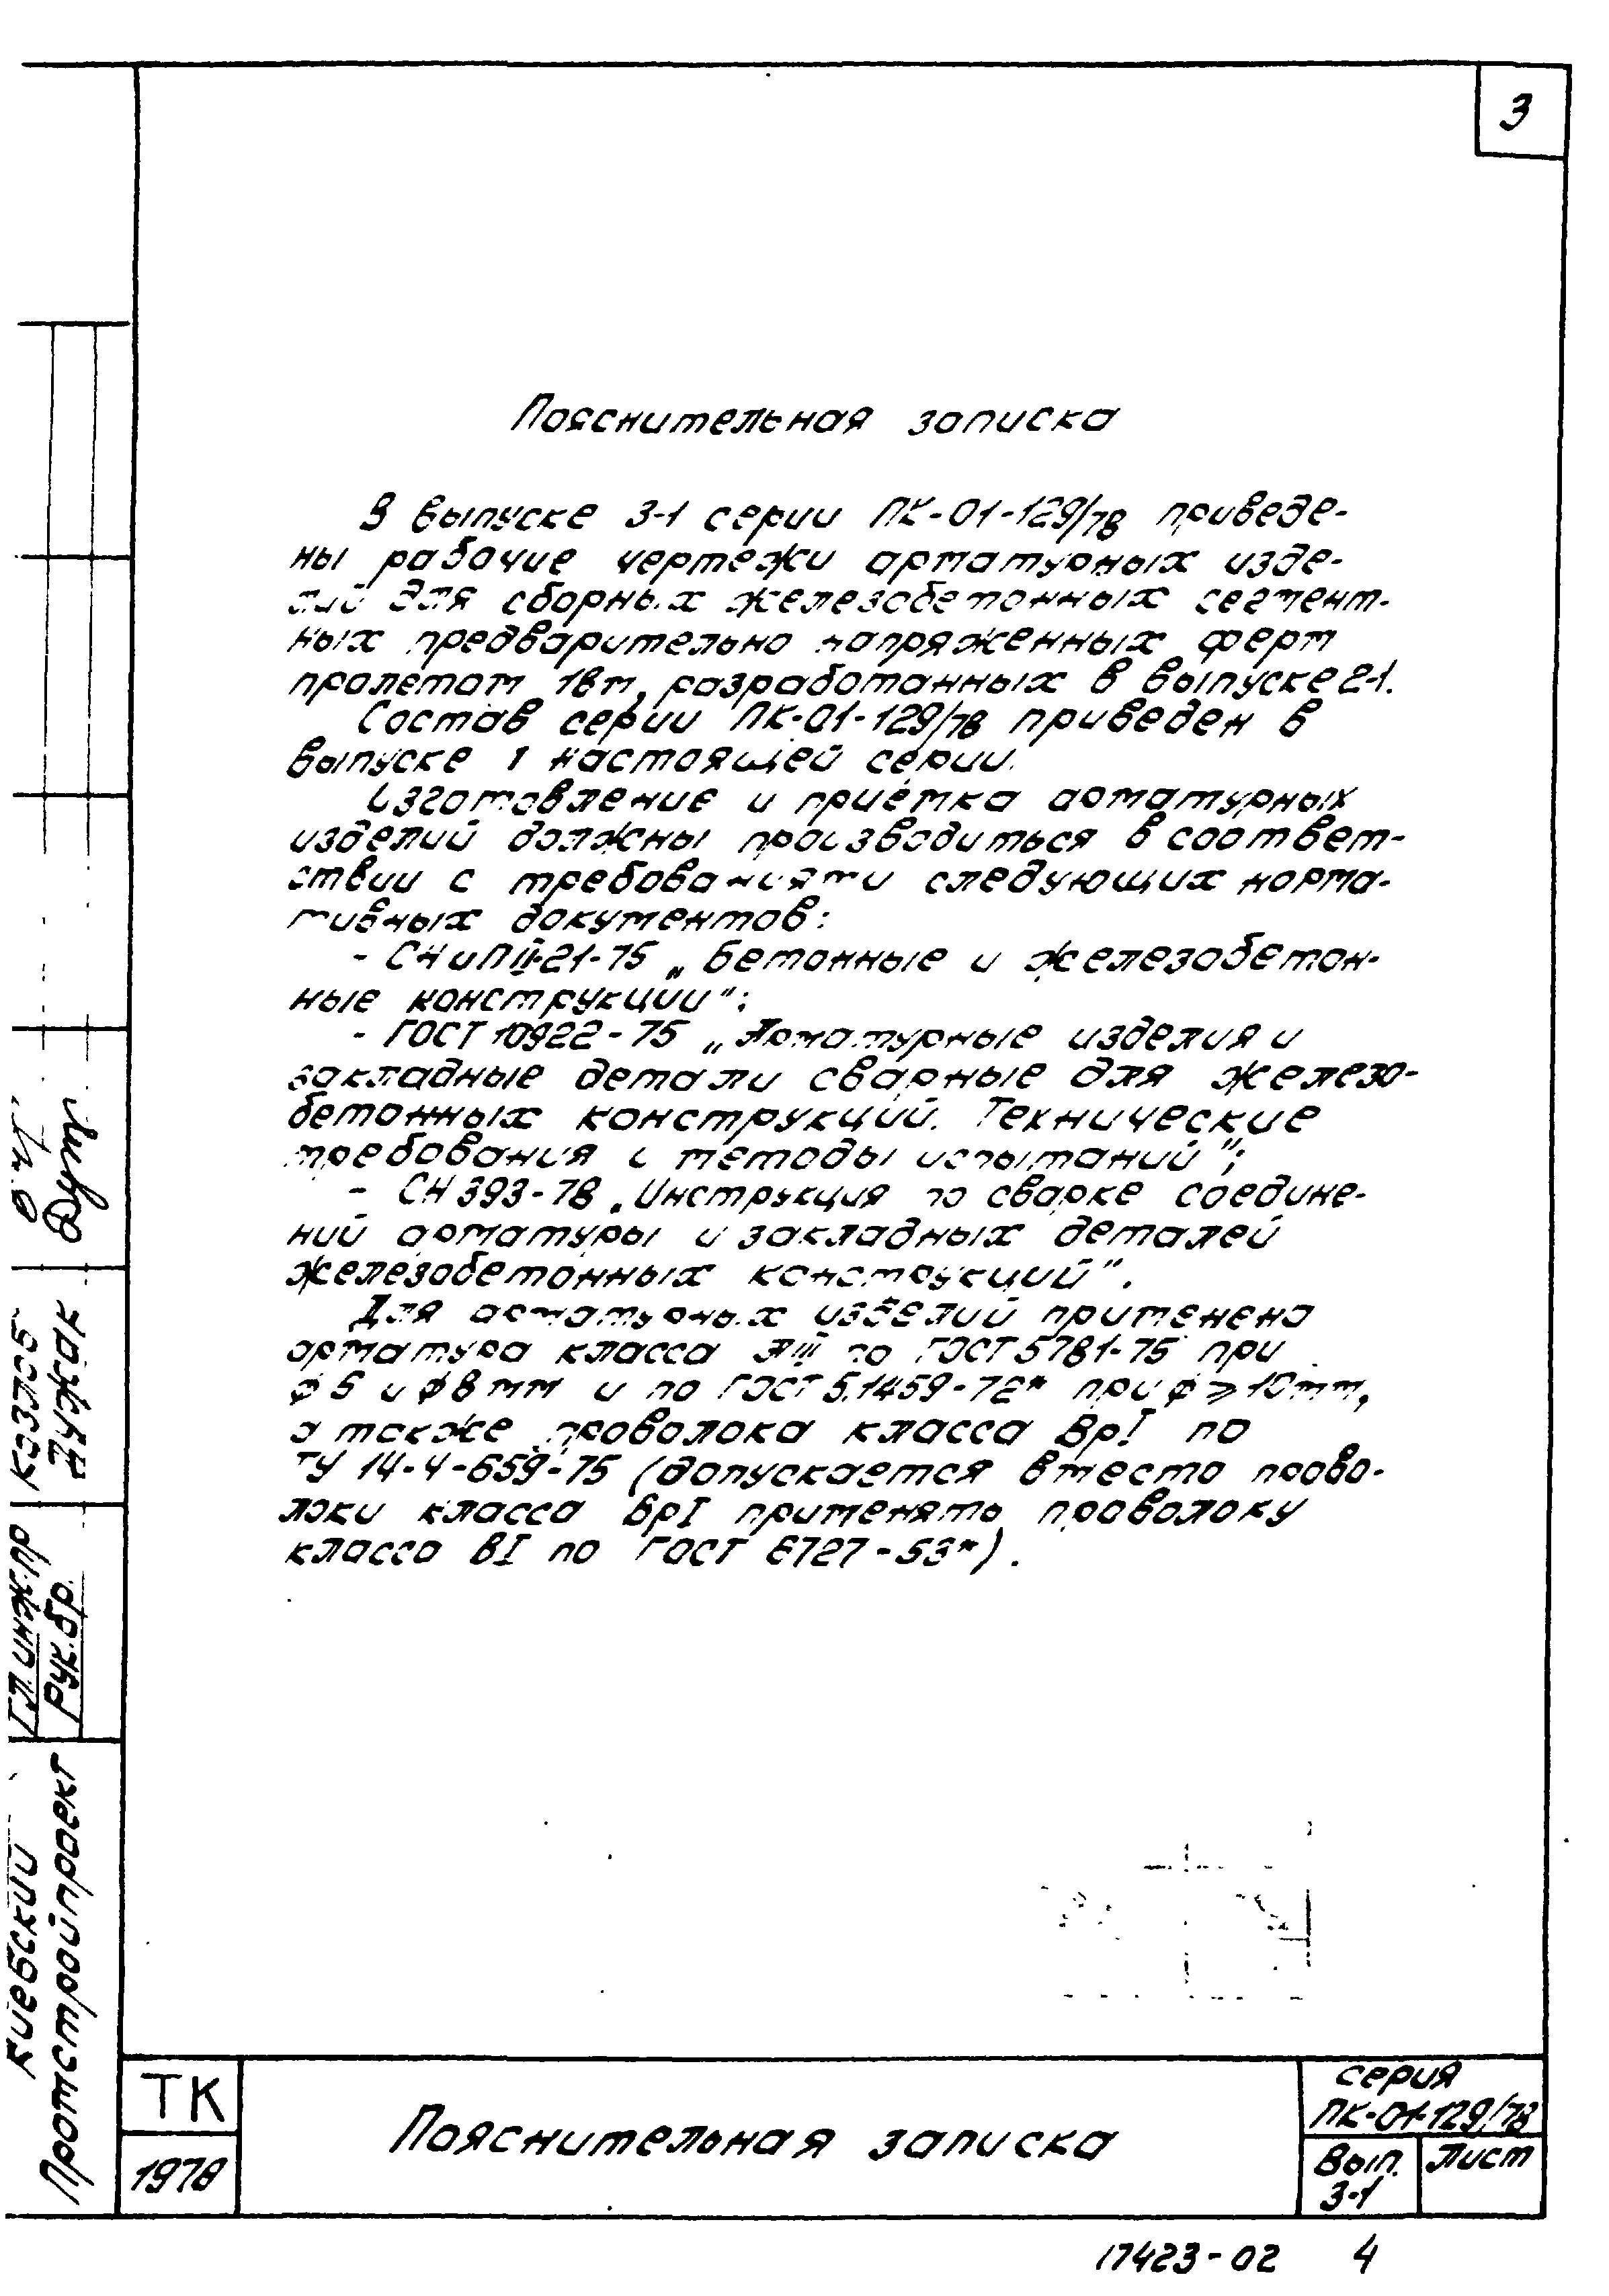 3
Пояснительная записка
В выпуске 3-1 серии ПК-01-129/78 приведе-
ны рабочие чертежи арматурных изде-
лий для сборных железобетонных сегмент-
ных предварительно напряженных ферм
пролетом 18м, разработанных в выпуске 2-1.
Состав серии ПК-01-129/78 приведен в
выпуске 1 настоящей серии.
Изготовление и приёмка арматурных
изделий должны производиться в соответ-
ствии с требованиями следующих норма-
тивных документов:
- СНиП II-21-75 „Бетонные и железобетон-
ные конструкции";
- ГОСТ 10922-75 „Арматурные изделия и
закладные детали сварные для железо-
бетонных конструкций. Технические
требования и методы испытаний";
- СН 393-78 „Инструкция по сварке соедине-
ний арматуры и закладных деталей
железобетонных конструкций".
Для арматурных изделий применена
арматура класса АIII по ГОСТ 5781-75 при
ф 6 и ф 8 мм и по ГОСТ 5.1459-72* при ф ≥ 10мм,
а также проволока класса ВрI по
ТУ 14-4-659-75 (допускается вместо прово-
локи класса ВрI применять проволоку
класса ВI по ГОСТ 6727-53*).
Гл. инж. пр Козлов
Рук. бр.
Киевский
Промстройпроект
ТК
1978
Пояснительная записка
серия
ПК-01-129/78
Вып.
3-1
Лист
17423-02 4